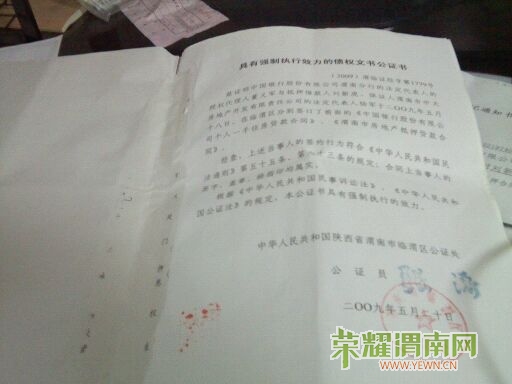 具有强制执行效力的债权文书公证书
(2009)渭临证经字第1779号
兹证明中国银行股份有限公司渭南分行的法定代表人的
授权代理人董义军与抵押借款人刘新庆、保证人渭南市中天
房地产开发有限责任公司的法定代表人陆军于二OO九年五月
十八日,在临渭区分别签订了前面的《中国银行股份有限公
司个人一手住房贷款合同》、《渭南市房地产抵押贷款合
同》。
经查,上述当事人的签约行为符合《中华人民共和国民
法通则》第五十五条、第八十三条的规定;合同上当事人的
签字、盖章、捺指印均属实。
根据《中华人民共和国民事诉讼法》、《中华人民共和
国公证法》的规定,本公证书具有强制执行的效力。
中华人民共和国陕西省渭南市临渭区公证处
公证员
二OO九年五月二十日
通知书
荣耀渭南网
WWW.YEWN.CN